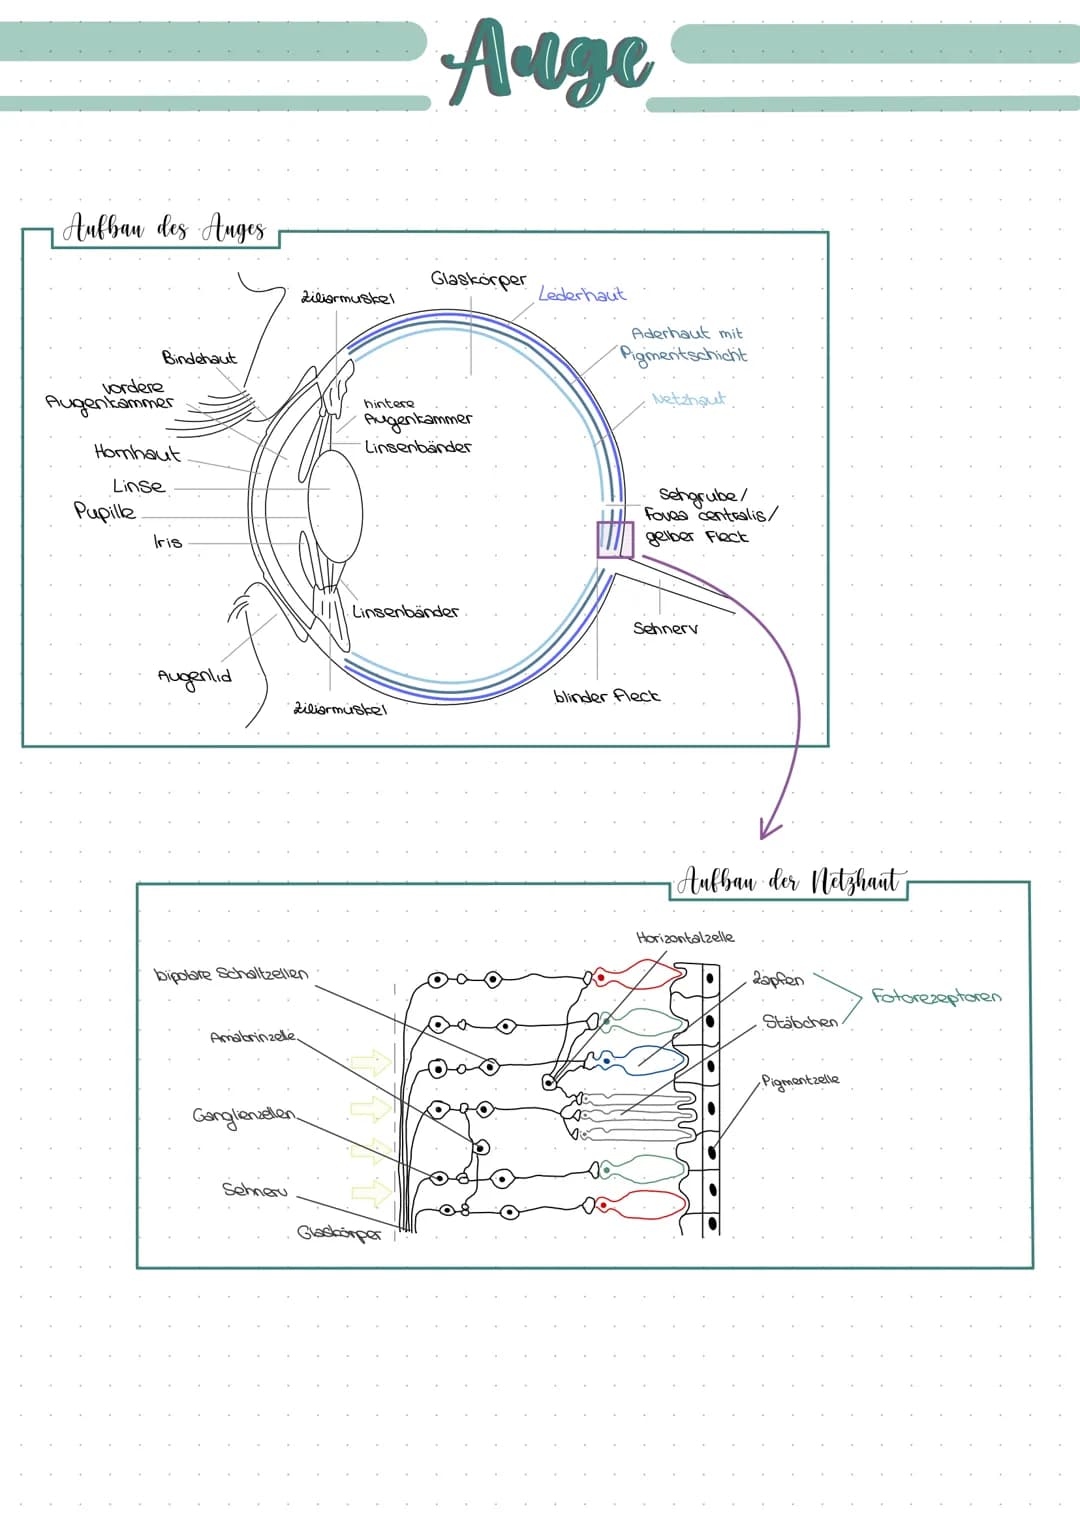 Auge
Aufbau des Auges
Glaskörper
Ziliarmuskel
Lederhaut
Aderhaut mit
Pigmentschicht
Bindehaut
vordere
Augenkammer
hintere
Augenkammer
Netzhaut
Linsenbänder
Hornhaut
Linse
Pupille
Iris
Sehgrube/
Fovea centralis/
gelber Fleck
Linsenbänder
Sehnerv
Augenlid
blinder Fleck
Ziliarmuskel
Aufbau der Netzhaut
Horizontalzelle
bipolare Schaltzellen
Zapfen
Fotorezeptoren
Stäbchen
Amakrinzelle
Pigmentzelle
Ganglienzellen
Sehnerv
Glaskörper